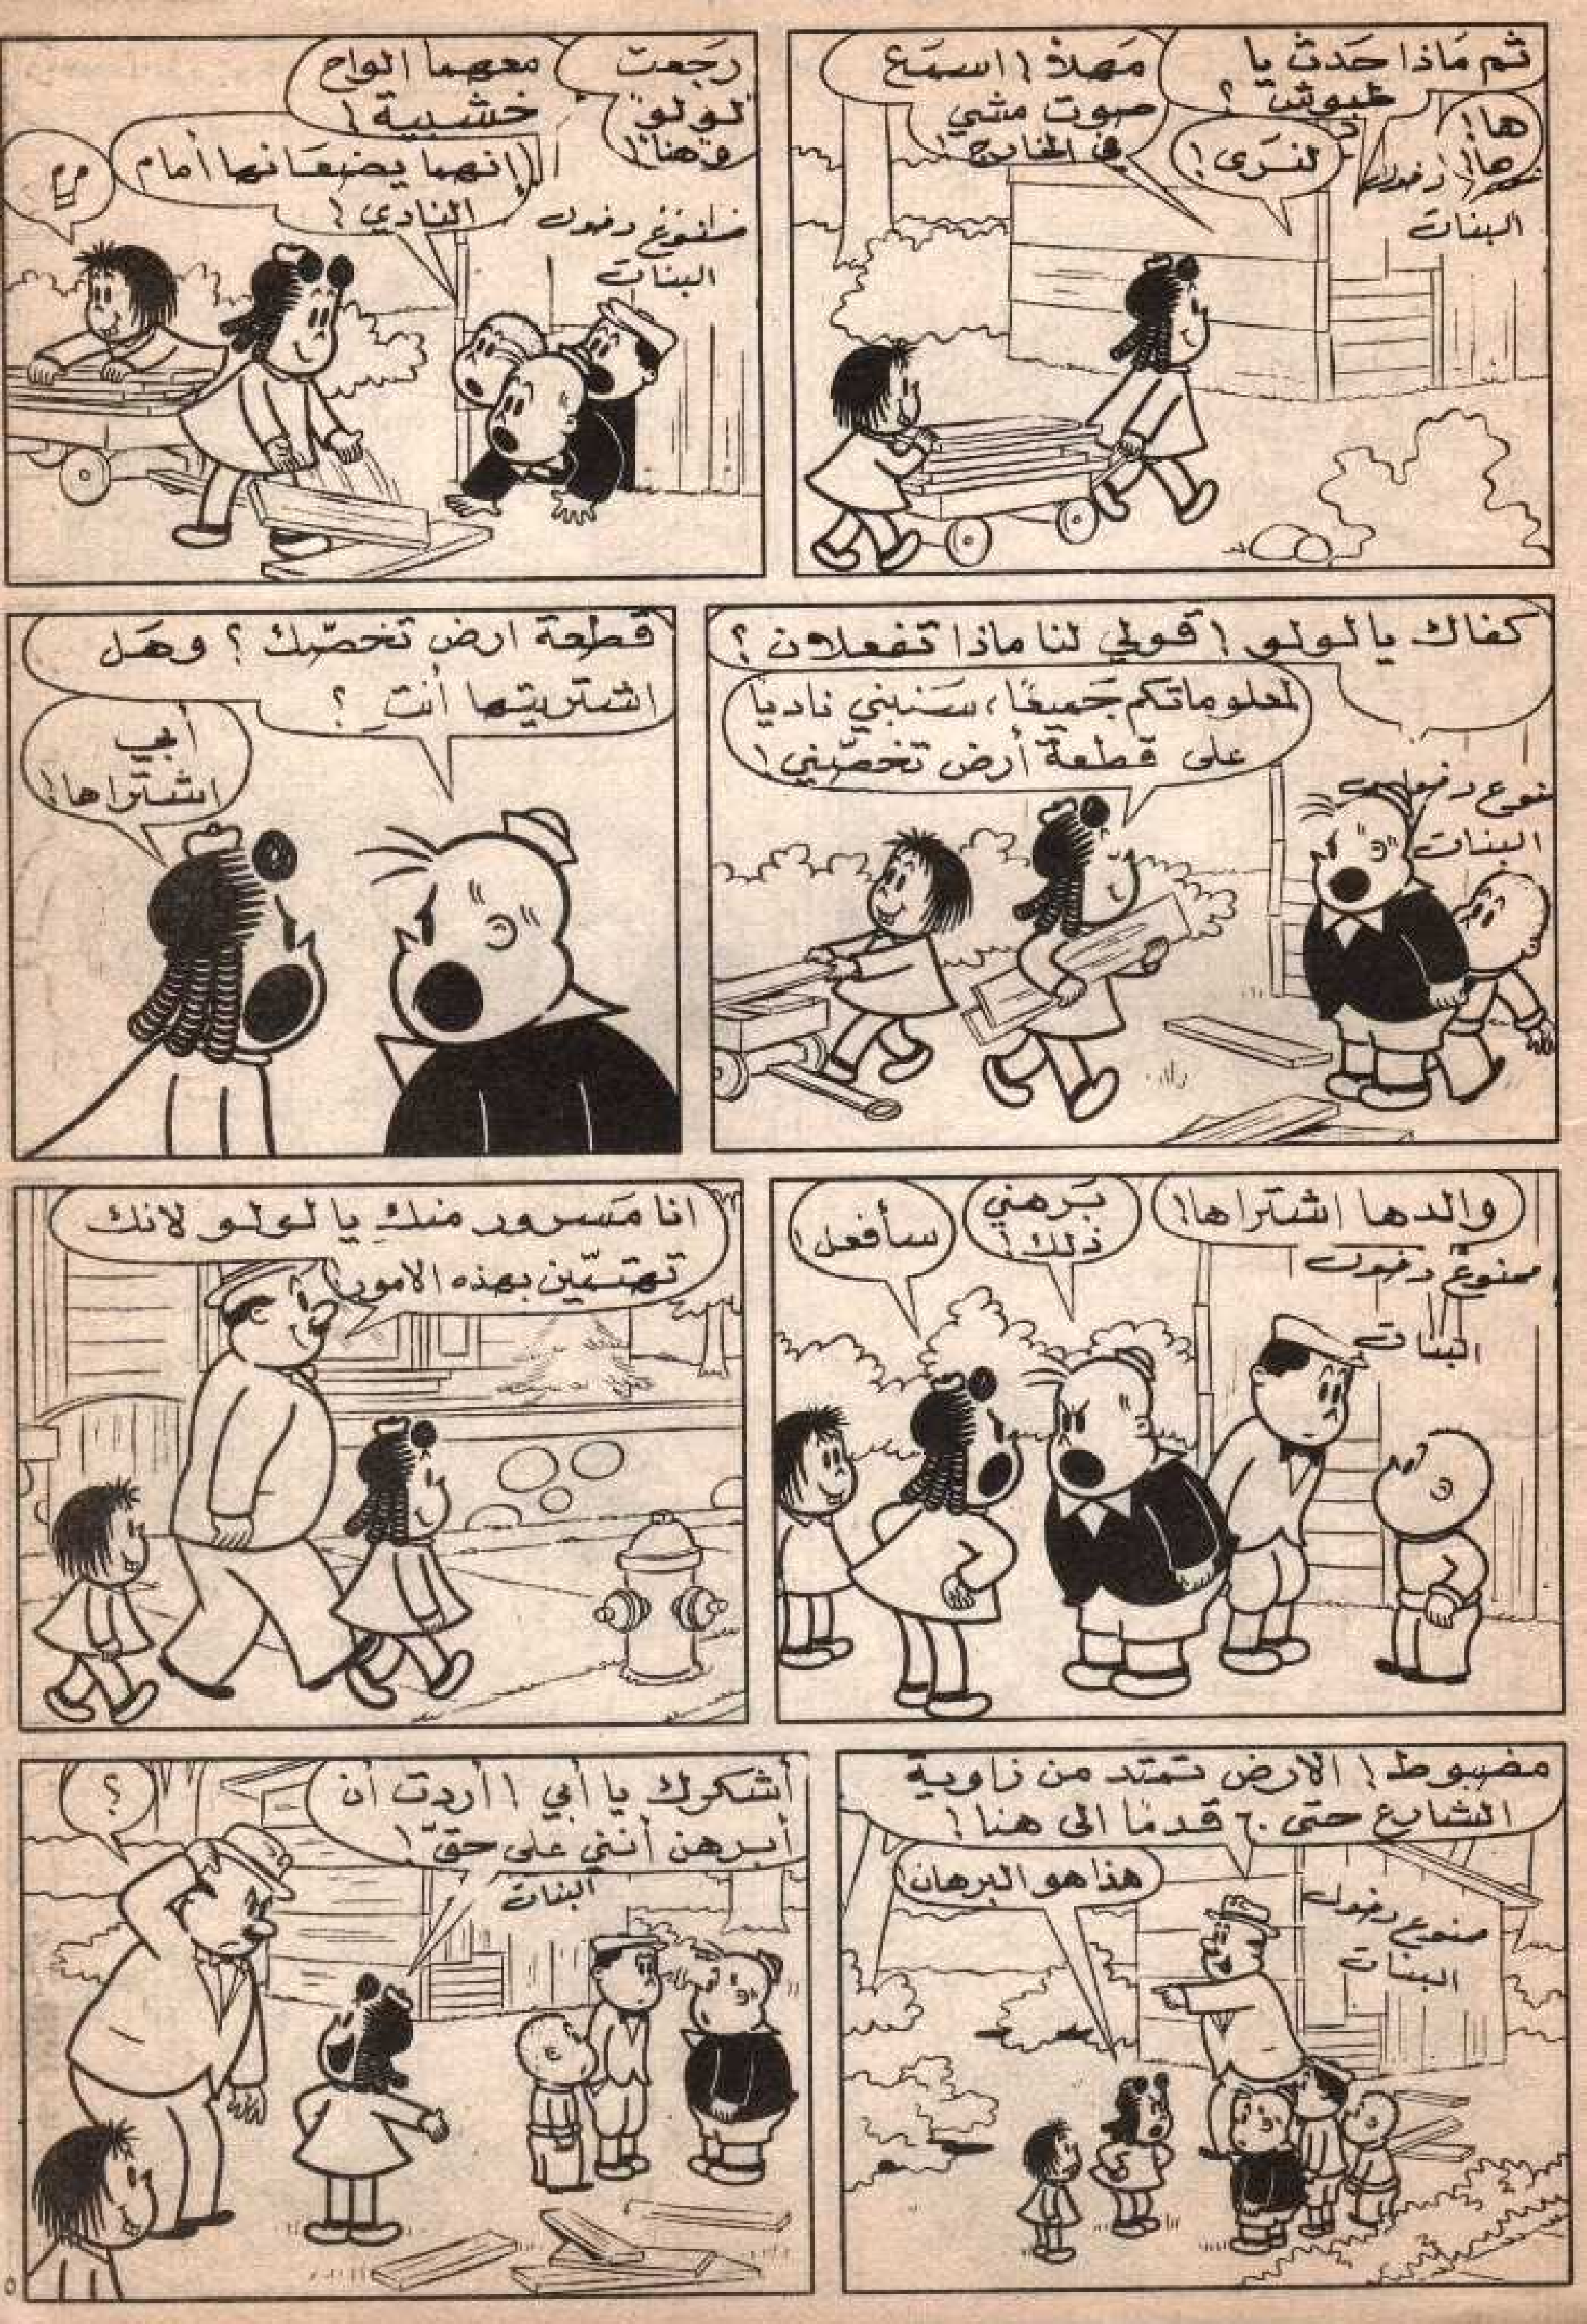 ثم مَاذا حَدث يا
طبوش؟
ها!
ها!
لنرَى!
مَهلاً! اسمَع
صوت مشي
في الخارج!
دخول
البنات
رَجعت
لولو
وهنا!
معهما الواح
خشبية!
إنهما يضعَانها أمام
النادي!
ممنوع دخول
البنات
كفاك يا لولو! قولي لنا ماذا تفعلان؟
لمعلوماتكم جَميعًا، سَنبني ناديًا
على قطعة أرض تخصّني!
ممنوع دخول
البنات
قطعة ارض تخصّك؟ وهَل
اشتريتها أنتِ؟
أبي
اشتراها!
والدها اشتراها!
بَرهني
ذلك!
سأفعل!
ممنوع دخول
البنات
انا مَسرور منكِ يا لولو لانك
تهتمّين بهذه الامور!
مضبوط! الارض تمتد من زاوية
الشارع حتى ٦٠ قدمًا الى هنا!
هذا هو البرهان!
ممنوع دخول
البنات
أشكرك يا أبي! أردت أن
أبرهن أنني على حقّ!
؟
البنات